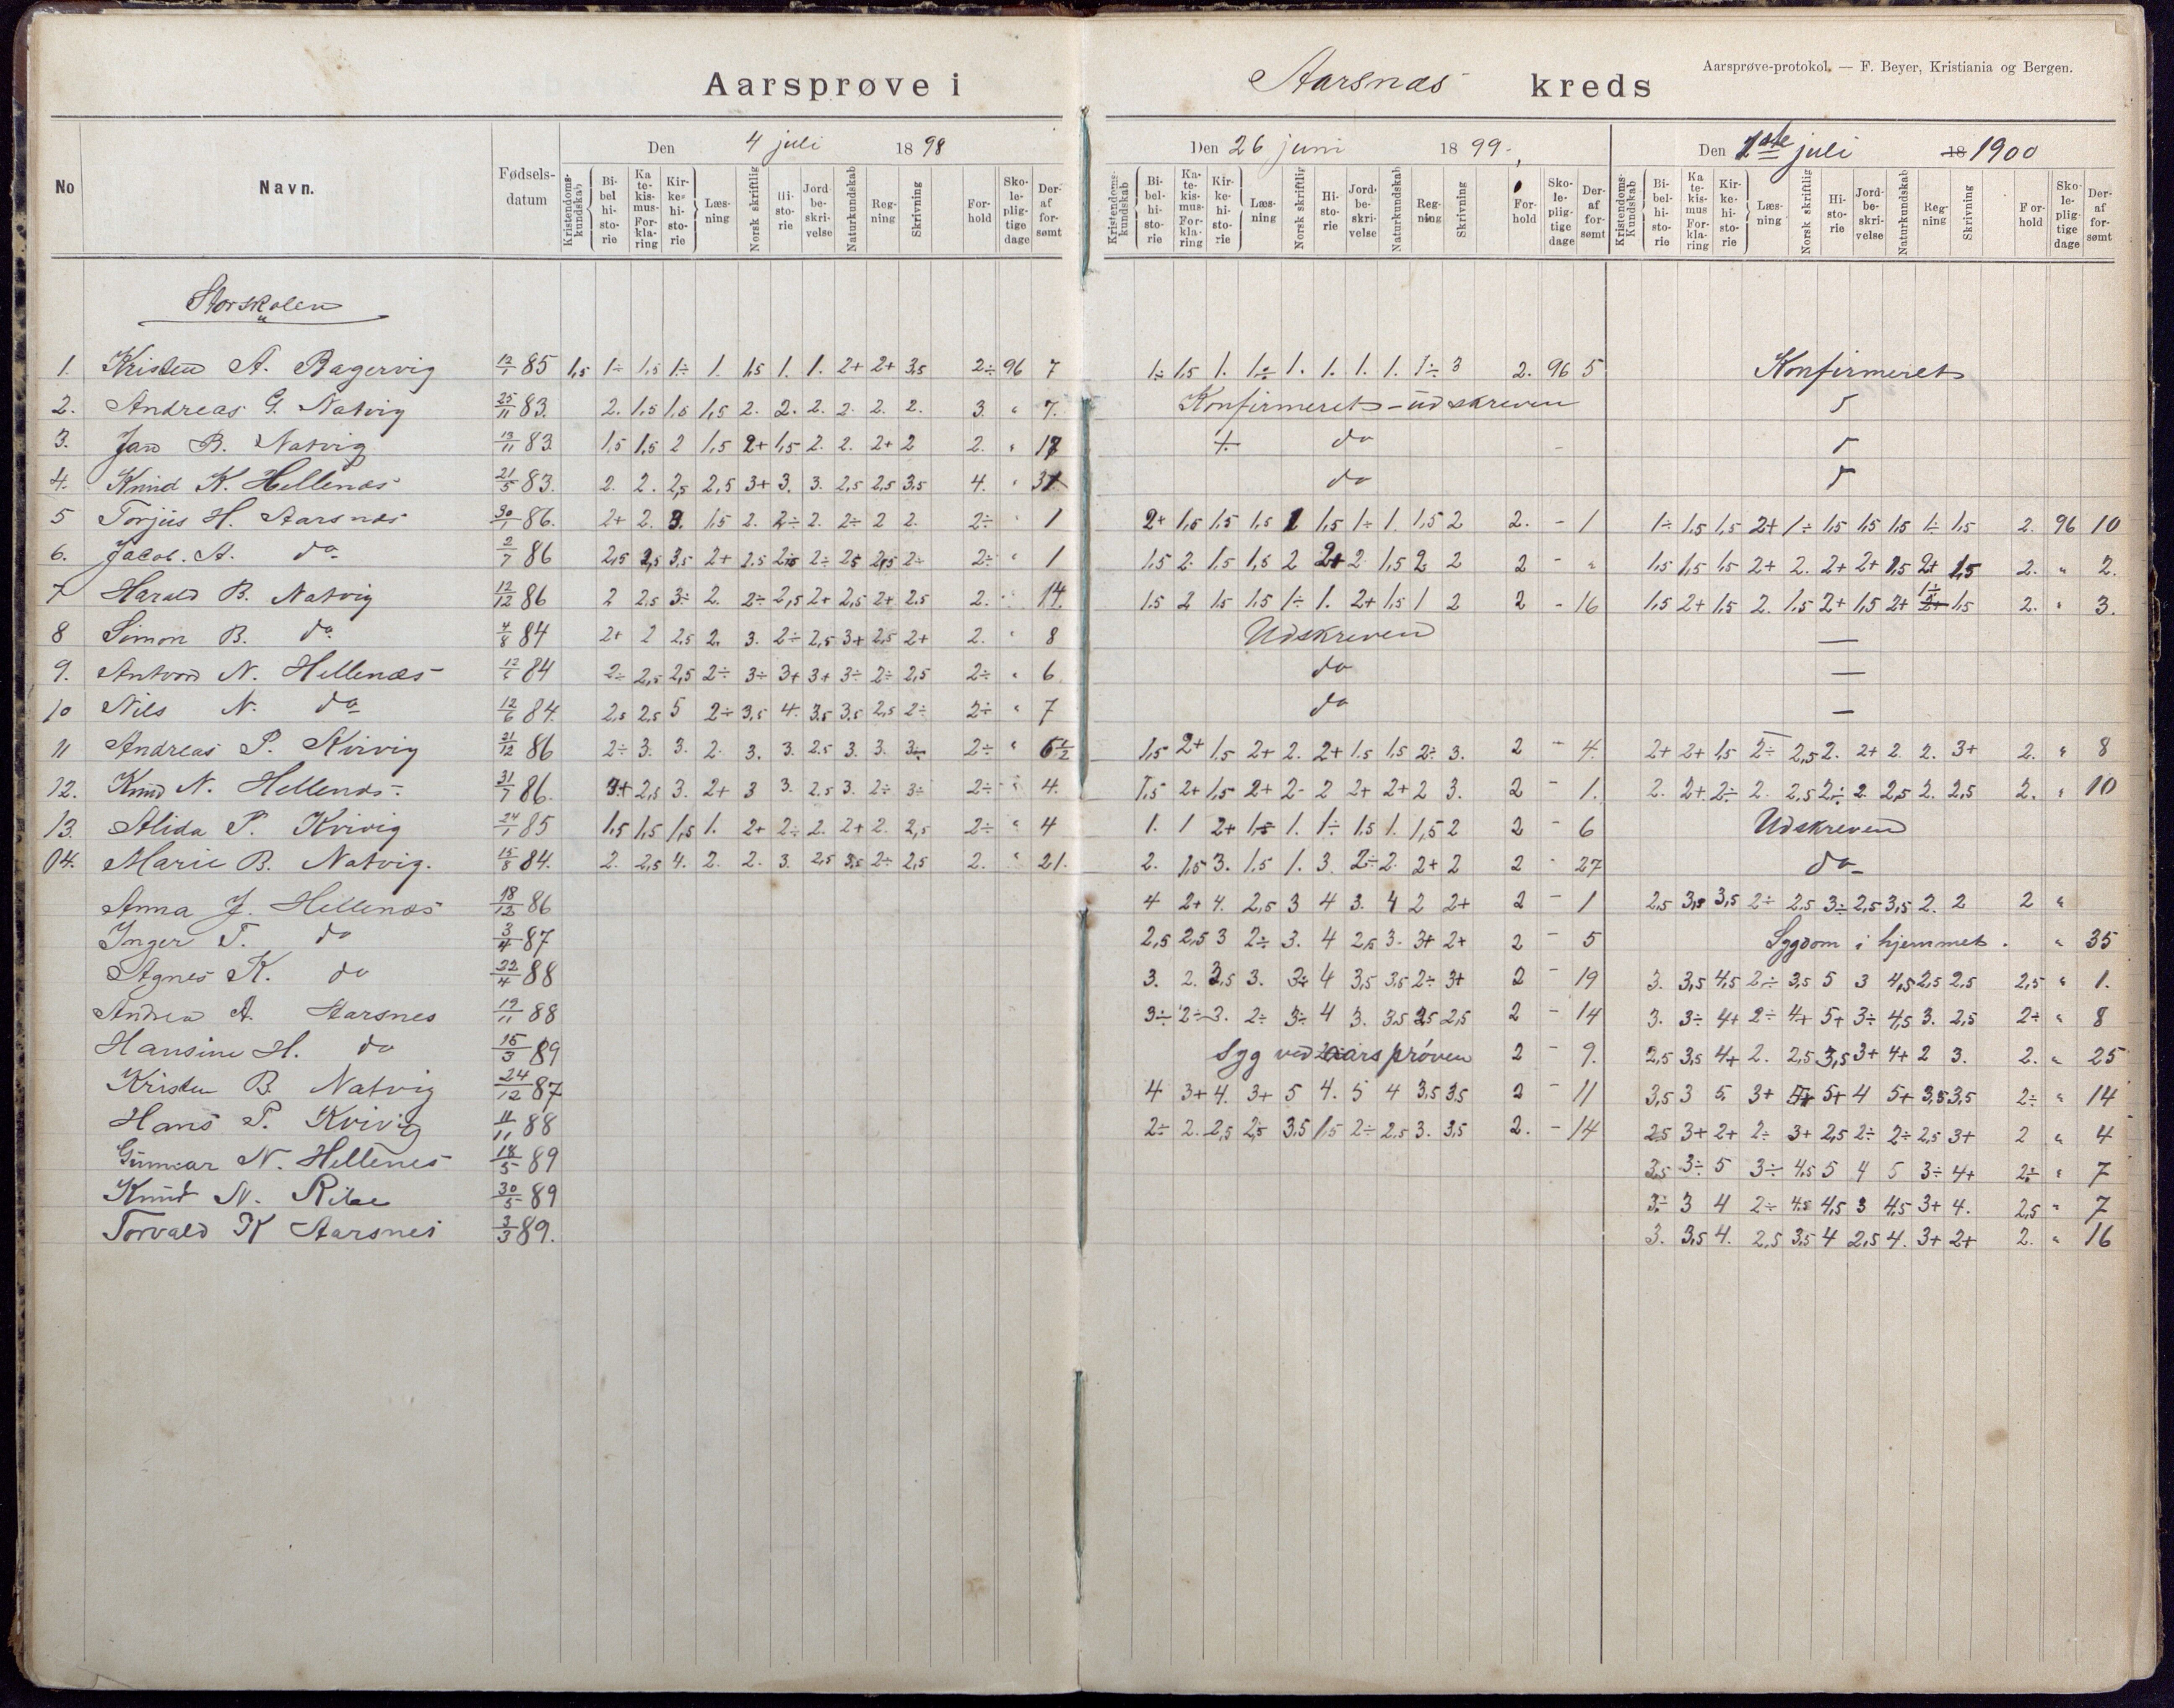 Aarsprøve i Aarsnæs kreds
Aarsprøve-protokol. — F. Beyer, Kristiania og Bergen.
No Navn. Fødselsdatum
Den 4 juli 1898
Den 26 juni 1899
Den 1ste juli 18 1900
Kristendomskundskab Bibelhistorie Katekismus Forklaring Kirkehistorie Læsning Norsk skriftlig Historie Jordbeskrivelse Naturkundskab Regning Skrivning Forhold Skolepligtige dage Deraf forsømt
Kristendomskundskab Bibelhistorie Katekismus Forklaring Kirkehistorie Læsning Norsk skriftlig Historie Jordbeskrivelse Naturkundskab Regning Skrivning Forhold Skolepligtige dage Deraf forsømt
Kristendomskundskab Bibelhistorie Katekismus Forklaring Kirkehistorie Læsning Norsk skriftlig Historie Jordbeskrivelse Naturkundskab Regning Skrivning Forhold Skolepligtige dage Deraf forsømt
Storskolen
1. Kristen A. Bagervig 12/1 85 1,5 1÷ 1,5 1÷ 1. 1,5 1. 1. 2+ 2+ 3,5 2÷ 96 7 1÷ 1,5 1. 1÷ 1. 1. 1. 1. 1÷ 3 2. 96 5 Konfirmeret
2. Andreas G. Natvig 25/11 83. 2. 1,5 1,5 1,5 2. 2. 2. 2. 2. 2. 3. " 7. Konfirmeret - udskreven
3. Jan B. Natvig 13/11 83 1,5 1,5 2 1,5 2+ 1,5 2. 2. 2+ 2 2. " 17 do
4. Knud K. Hellenæs 21/5 83. 2. 2. 2,5 2,5 3+ 3. 3. 2,5 2,5 3,5 4. " 31 do
5 Torjus H. Aarsnæs 30/1 86. 2+ 2. 3. 1,5 2. 2÷ 2. 2÷ 2 2. 2÷ " 1 2+ 1,5 1,5 1,5 1 1,5 1÷ 1. 1,5 2 2. - 1 1÷ 1,5 1,5 2+ 1÷ 1,5 1,5 1,5 1÷ 1,5 2. 96 10
6. Jacob. A. do 2/7 86 2÷ " 1 1,5 2. 1,5 1,5 2 2+ 2 1,5 2 2 2 - " 1,5 1,5 1,5 2+ 2. 2+ 2+ 1,5 2+ 1,5 2. " 2.
7 Harald B. Natvig 12/12 86 2 2,5 3÷ 2. 2÷ 2,5 2+ 2,5 2+ 2,5 2. " 14. 1,5 2 1,5 1,5 1÷ 1. 2+ 1,5 1 2 2 - 16 1,5 2+ 1,5 2. 1,5 2+ 1,5 2+ 1÷ 2+ 1,5 2. " 3.
8 Simon B. do 4/8 84 2+ 2 2,5 2. 3. 2÷ 2,5 3+ 2,5 2+ 2. " 8 Udskreven —
9. Antoon N. Hellenæs 84 2÷ 2,5 2,5 2÷ 3÷ 3+ 3+ 3÷ 2÷ 2,5 2÷ " 6 do —
10 Nils N. do 12/6 84. 2,5 2,5 5 2÷ 3,5 4. 3,5 3,5 2,5 2÷ 2÷ " 7 do —
11 Andreas P. Kvivig 21/12 86 2÷ 3. 3. 2. 3. 3. 2,5 3. 3. 3÷ 2÷ " 6½ 1,5 2+ 1,5 2+ 2. 2+ 1,5 1,5 2÷ 3. 2 - 4. 2+ 2+ 1,5 2÷ 2,5 2. 2+ 2 2. 3+ 2. " 8
12. Knud N. Hellenæs 31/7 86. 3+ 2,5 3. 2+ 3 3. 2,5 3. 2÷ 3÷ 2÷ " 4. 1,5 2+ 1,5 2+ 2 2 2+ 2+ 2 3. 2 - 1. 2. 2+ 2÷ 2. 2,5 2÷ 2. 2,5 2. 2,5 2. " 10
13. Alida P. Kvivig 24/1 85 1,5 1,5 1,5 1. 2+ 2÷ 2. 2+ 2. 2,5 2÷ " 4 1. 1 2+ 1,5 1. 1÷ 1,5 1. 1,5 2 2 - 6 Udskreven
14. Marie B. Natvig. 15/8 84. 2. 2,5 4. 2. 2. 3. 2,5 3,5 2÷ 2,5 2. " 21. 2. 1,5 3. 1,5 1. 3. 2÷ 2. 2+ 2 2 - 27 do
Anna J. Hellenæs 18/12 86 4 2+ 4. 2,5 3 4 3. 4 2 2+ 2 - 1 2,5 3,5 3,5 2÷ 2,5 3÷ 2,5 3,5 2. 2 2 "
Inger T. do 3/4 87 2,5 2,5 3 2÷ 3. 4 2,5 3. 3+ 2+ 2 - 5 Sygdom i hjemmet. " 35
Agnes K. do 22/4 88 3. 2. 2,5 3. 3÷ 4 3,5 3,5 2÷ 3+ 2 - 19 3. 3,5 4,5 2÷ 3,5 5 3 4,5 2,5 2,5 2,5 " 1.
Andrea A. Aarsnes 19/11 88 3÷ 2÷ 3. 2÷ 3÷ 4 3. 3,5 2,5 2,5 2 - 14 3. 3÷ 4+ 2÷ 4+ 5+ 3÷ 4,5 3. 2,5 2÷ " 8
Hansine H. do 15/3 89 Syg ved aarsprøven 2 - 9. 2,5 3,5 4+ 2. 2,5 3,5 3+ 4+ 2 3. 2. " 25
Kristen B Natvig 24/12 87 4 3+ 4. 3+ 5 4. 5 4 3,5 3,5 2 - 11 3,5 3 5 3+ 5+ 5+ 4 5+ 3,5 3,5 2÷ " 14
Hans P. Kvivig 11/11 88 2÷ 2. 2,5 2,5 3,5 1,5 2÷ 2,5 3. 3,5 2. - 14 2,5 3+ 2+ 2÷ 3+ 2,5 2÷ 2÷ 2,5 3+ 2 " 4
Gunnar N. Hellenes 18/5 89 3,5 3÷ 5 3÷ 4,5 5 4 5 3÷ 4+ 2÷ " 7
Knud N. Ribe 30/5 89 3÷ 3 4 2÷ 4,5 4,5 3 4,5 3+ 4. 2,5 " 7
Torvald K Aarsnes 3/3 89. 3. 3,5 4. 2,5 3,5 4 2,5 4. 3+ 2+ 2. " 16